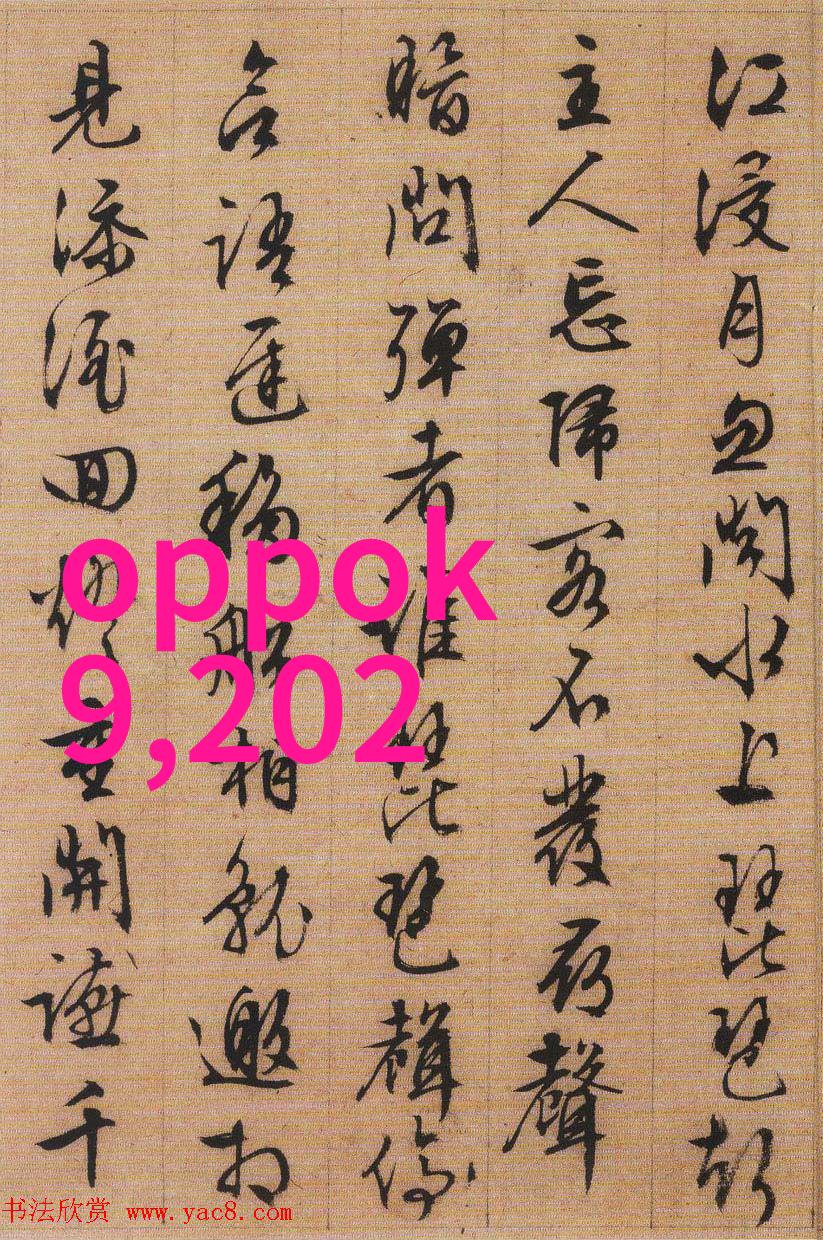 江浸月忽聞水上琵琶聲
主人忘歸客不發尋聲
暗問彈者誰琵琶聲停
欲語遲移船相就邀相
見添酒回燈重開讌千
oppok
9,202
书法欣赏 www.yac8.com